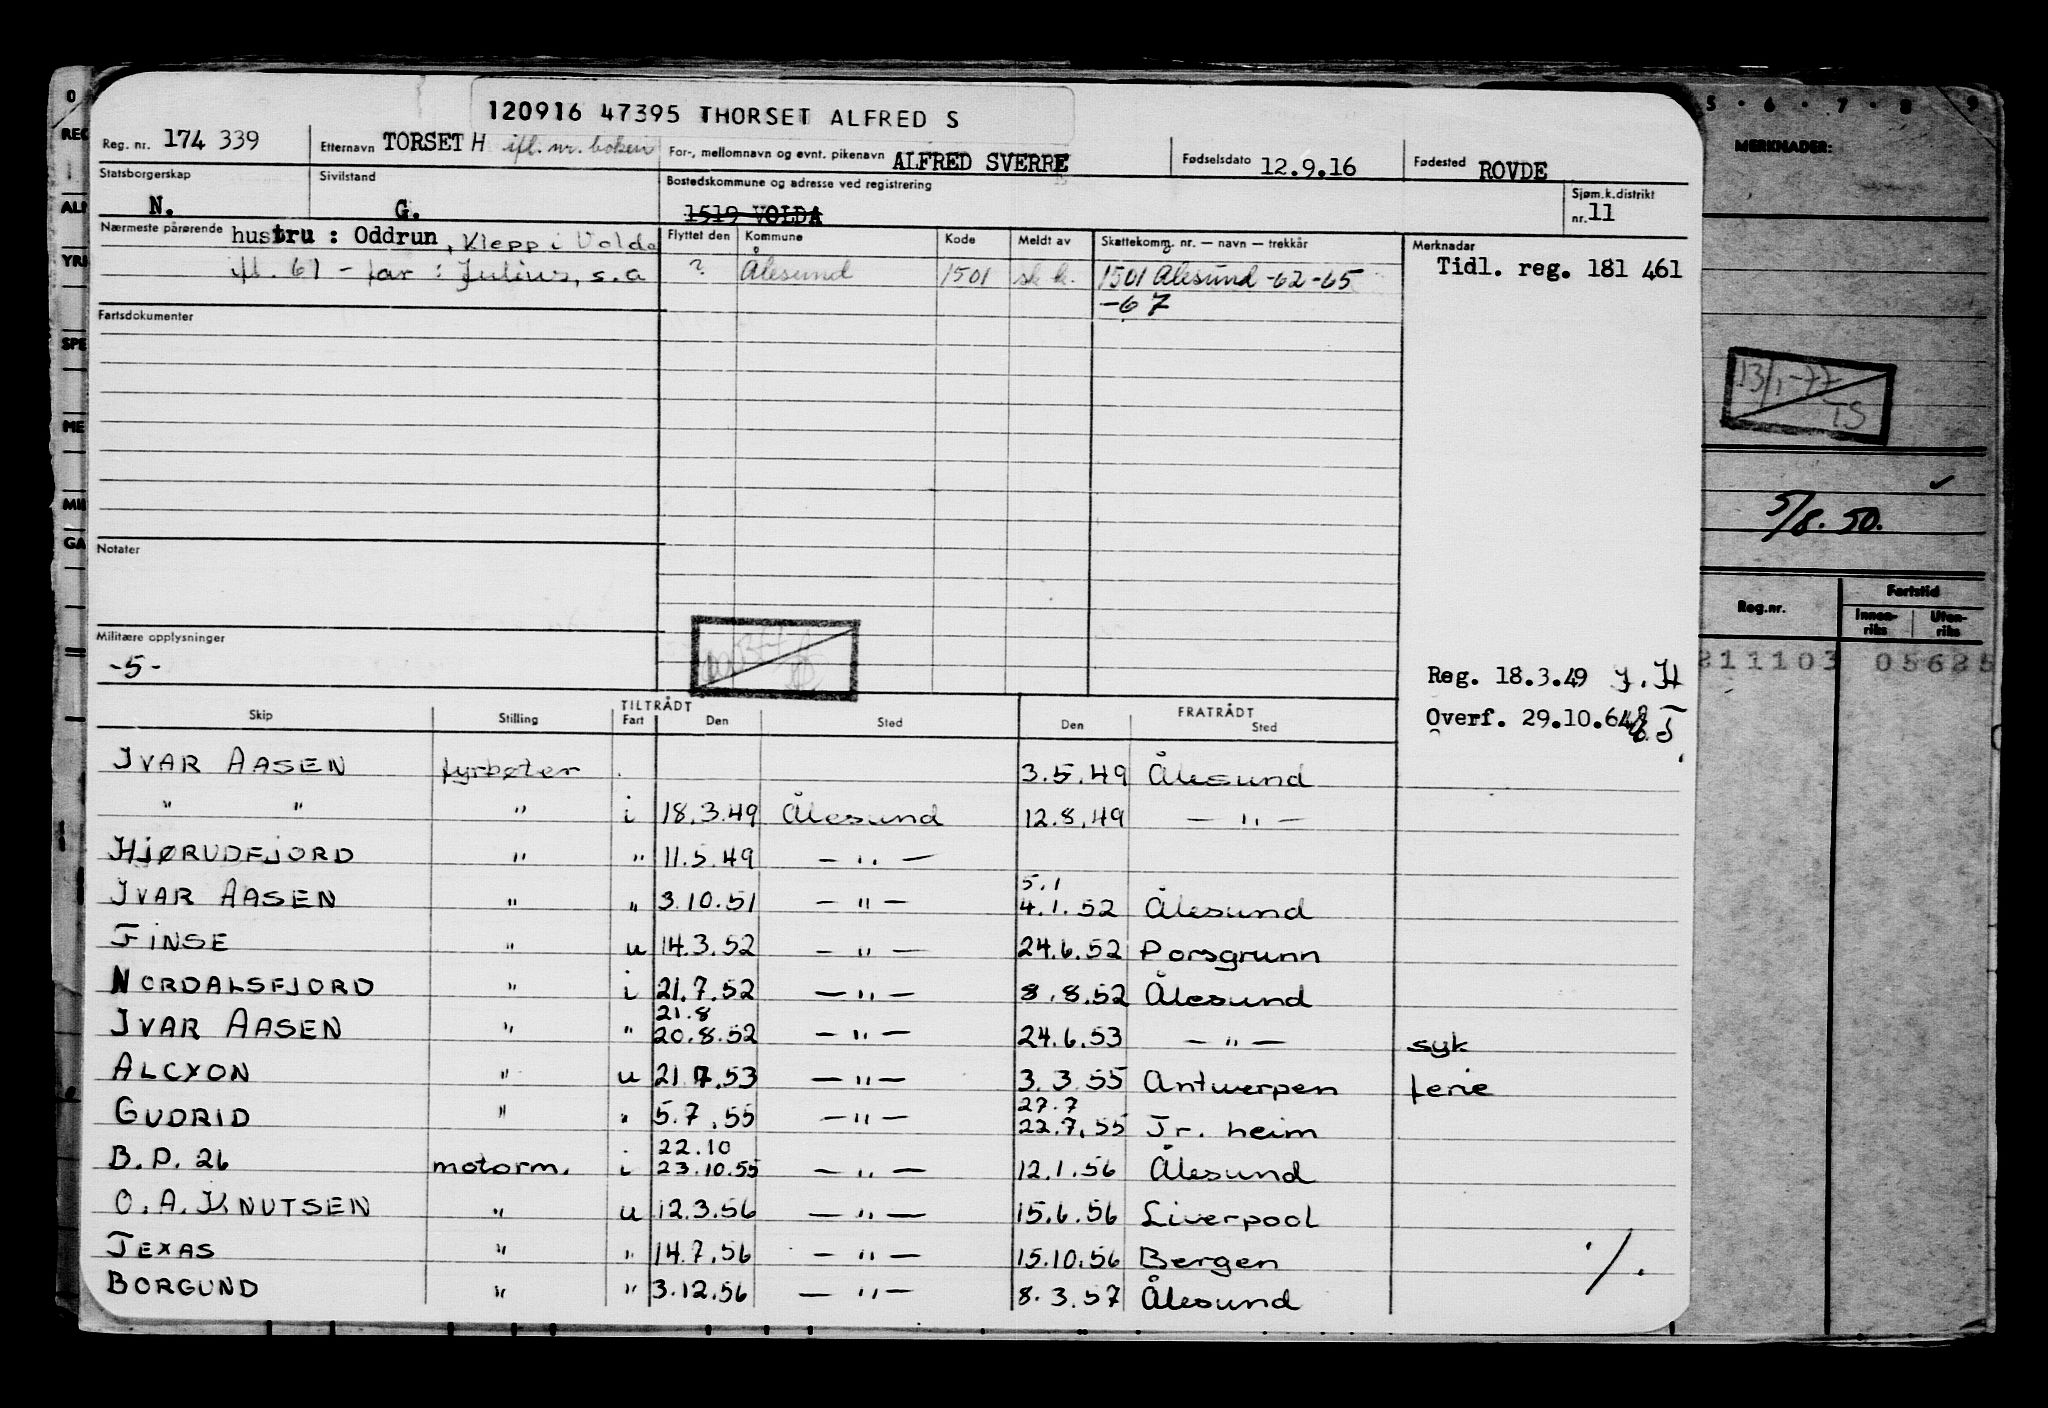 120916 47395 THORSET ALFRED S
Reg. nr. 174 339 Etternavn TORSET H ifl. nr. boken For-, mellomnavn og evnt. pikenavn ALFRED SVERRE Fødselsdato 12.9.16 Fødested ROVDE
Statsborgerskap N. Sivilstand G. Bostedskommune og adresse ved registrering 1519 VOLDA Sjøm.k.distrikt nr. 11
Nærmeste pårørende hustru : Oddrun, Klepp i Volda
ifl. 61 - far : Julius, s.a
Flyttet den Kommune Kode Meldt av Skattekomm. nr. — navn — trekkår Merknadar
? Ålesund 1501 sk k. 1501 Ålesund -62-65 Tidl. reg. 181 461
-67
Fartsdokumenter
Notater
Militære opplysninger
-5-
Reg. 18.3.49 J.H
Overf. 29.10.64
Skip Stilling TILTRÅDT Fart Den Sted FRATRÅDT Den Sted
IVAR AASEN fyrbøter 3.5.49 Ålesund
" " " i 18.3.49 Ålesund 12.8.49 — " —
HJØRUDFJORD " " 11.5.49 — " —
IVAR AASEN " " 3.10.51 — " — 5.1 4.1.52 Ålesund
FINSE " u 14.3.52 — " — 24.6.52 Porsgrunn
NORDALSFJORD " i 21.7.52 — " — 8.8.52 Ålesund
IVAR AASEN " " 21.8 20.8.52 — " — 24.6.53 — " — syk
ALCYON " u 21.7.53 — " — 3.3.55 Antwerpen ferie
GUDRID " " 5.7.55 — " — 27.7 22.7.55 Tr. heim
B.P. 26 motorm. i 22.10 23.10.55 — " — 12.1.56 Ålesund
O.A. KNUTSEN " u 12.3.56 — " — 15.6.56 Liverpool
TEXAS " " 14.7.56 — " — 15.10.56 Bergen
BORGUND " " 3.12.56 — " — 8.3.57 Ålesund
./.
0
REG
ALF
YRK
SPE
ME
MIL
GA
5 · 6 · 7 · 8 · 9
MERKNADER:
13/1-77
TS
5/8.50.
Reg.nr. Fartstid
Innenriks Utenriks
211103 05625